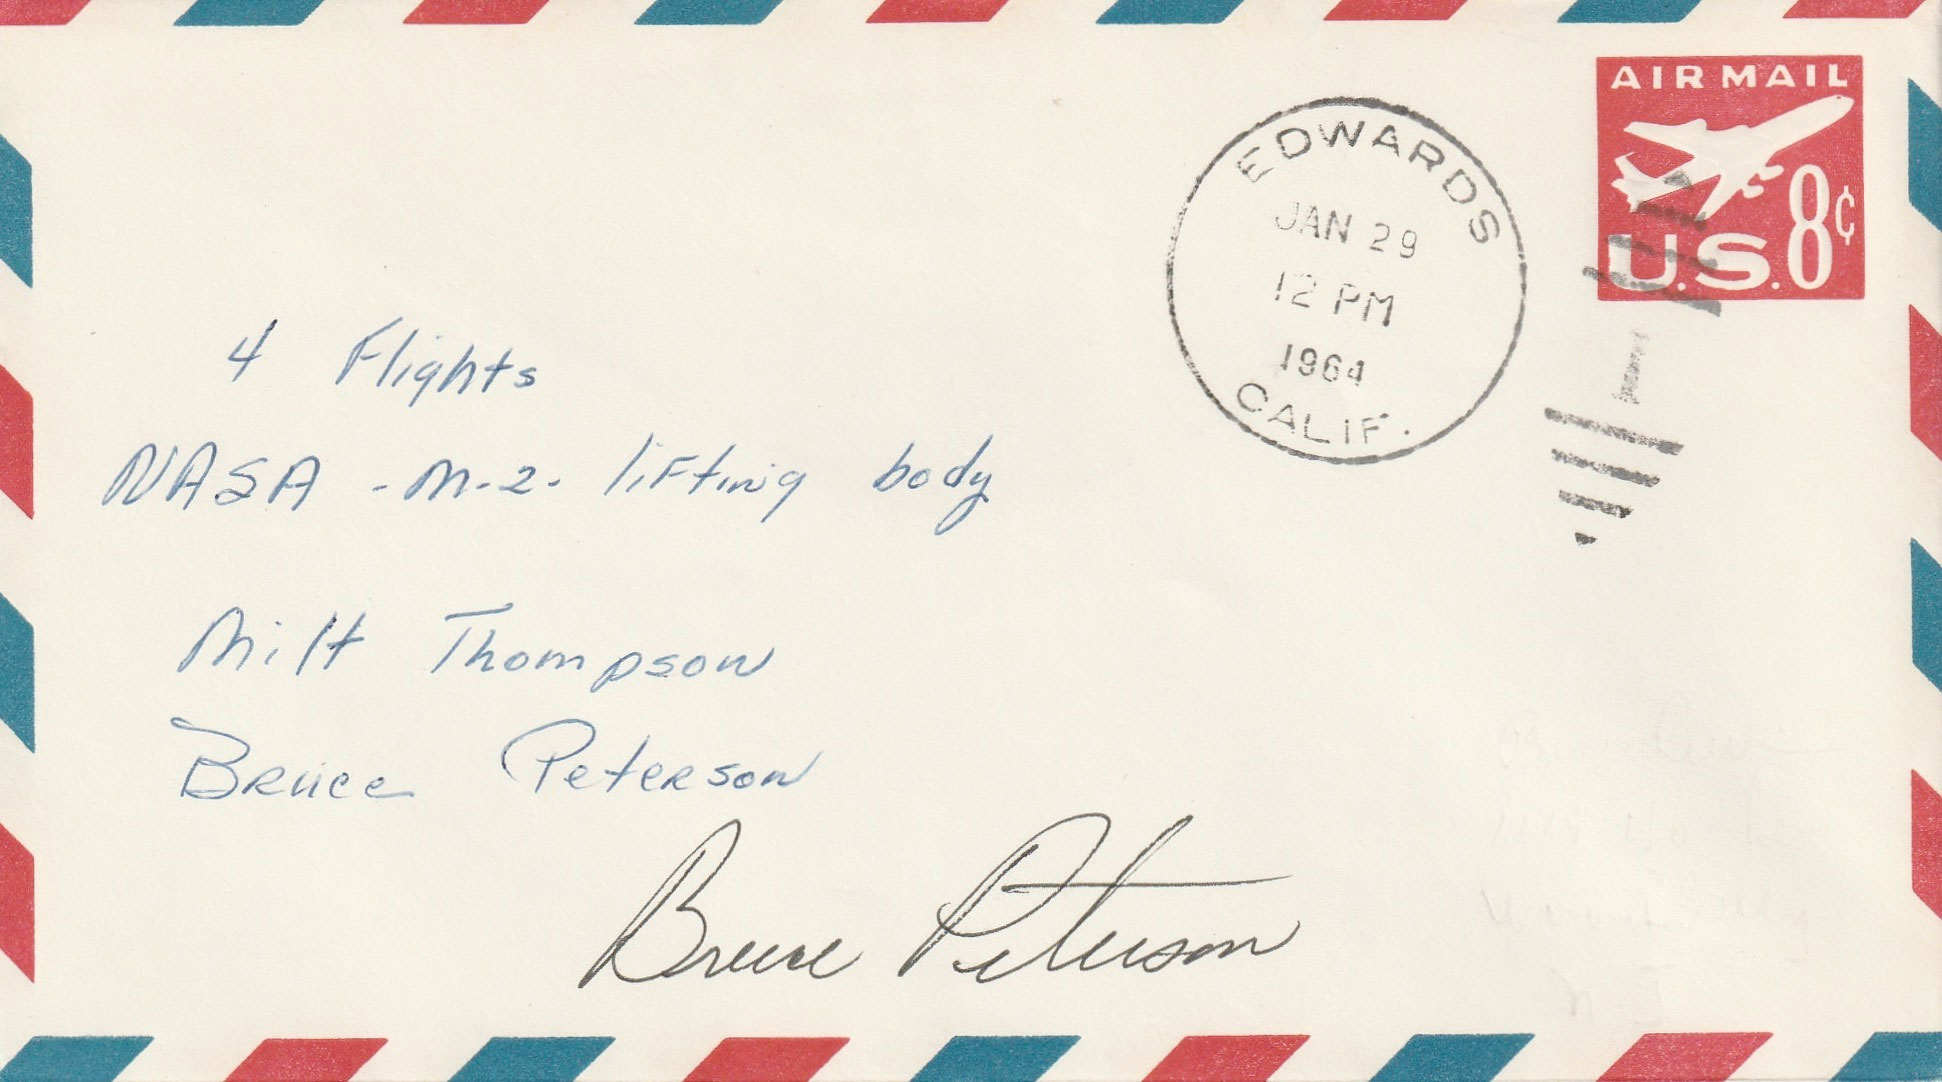 AIR MAIL
U.S. 8¢
EDWARDS
JAN 29
12 PM
1964
CALIF.
4 Flights
NASA - M-2- lifting body
Milt Thompson
Bruce Peterson
Bruce Peterson